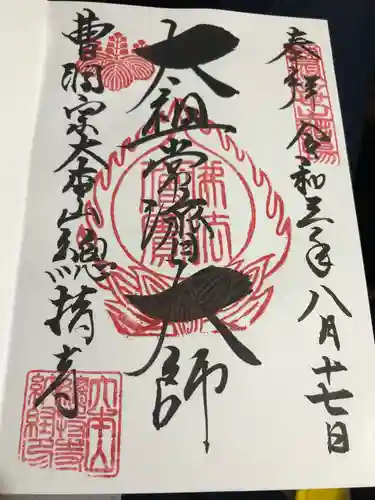 奉拝 令和三年八月十七日
太祖常済大師
曹洞宗大本山總持寺
佛法僧寶